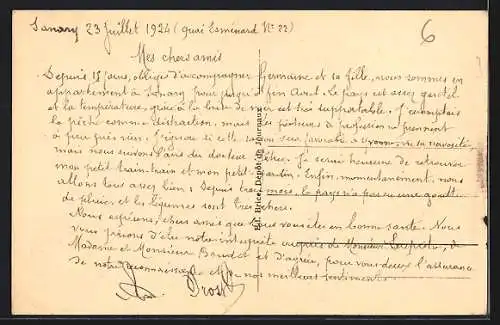 Sanary 23 Juillet 1924 (quai Esménard N° 22)
Mes chers amis
Depuis 15 jours, obligés d'accompagner Germaine et sa fille, nous sommes en
appartement à Sanary pour jusqu'à fin Août. Le pays est assez gentil
et la température, grâce à la brise de mer est très supportable. J'escomptais
la pêche comme distraction, mais les pêcheurs de profession ne prennent
à peu près rien. J'ignore si cette saison sera favorable à Yvonne, vu sa
mais nous suivons l'avis du docteur. Je serai heureuse de retrouver
mon petit train train et mon petit jardin. Enfin, momentanément, nous
allons tous assez bien; depuis trois mois, le pays n'a pas eu une goutte
de pluie et les légumes sont très chers.
Nous espérons, chers amis que vous êtes en bonne santé. Nous
vous prions d'être notre interprète auprès de Monsieur, de
Madame et Monsieur Bourdet et d'agréer, pour vous deux l'assurance
de notre reconnaissance et nos meilleurs sentiments.
Prost
Ed. Brice, Dépôt de Journaux
6